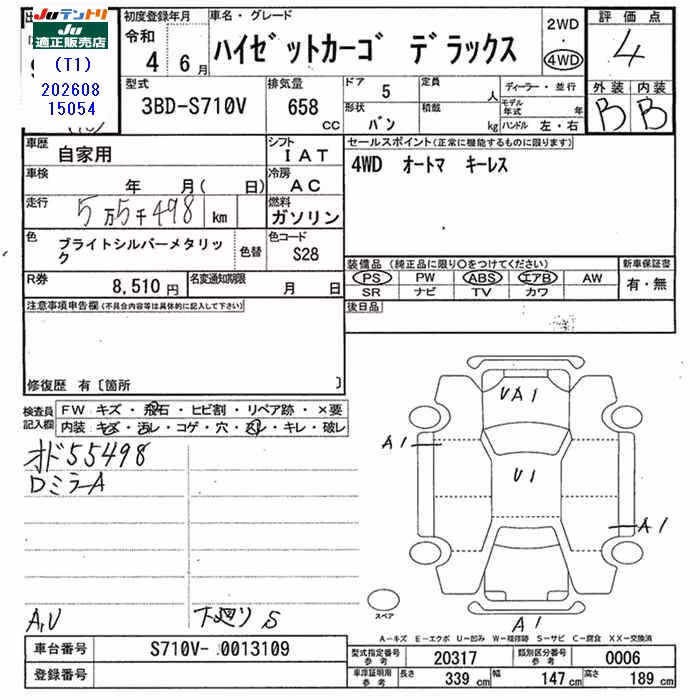 Juテントリ
Ju適正販売店
(T1)
202608
15054
初度登録年月
令和
4 6月
車名・グレード
ハイゼットカーゴ デラックス
2WD
・
4WD
評価点
4
外装 内装
B B
型式
3BD-S710V
排気量
658 cc
ドア
5
定員
人
形状
バン
積載
kg
ディーラー・並行
モデル年式 年
ハンドル 左・右
車歴
自家用
シフト
IAT
車検
年 月( 日)
冷房
AC
走行
5万5千498 km
燃料
ガソリン
色
ブライトシルバーメタリック
色替
色コード
S28
R券
8,510円
名変通知期限
月 日
セールスポイント(正常に機能するものに限ります)
4WD オートマ キーレス
装備品(純正品に限り○をつけてください)
PS PW ABS エアB AW
SR ナビ TV カワ
新車保証書
有・無
注意事項申告欄(不具合内容等は具体的に記入して下さい)
後日品
修復歴 有〔箇所 〕
検査員記入欄
FW キズ・飛石・ヒビ割・リペア跡・×要
内装 キズ・汚レ・コゲ・穴・スレ・キレ・破レ
オド55498
DミラーA
A,U
下廻りS
UA1
A1
U1
A1
A1
スペア
A-キズ E-エクボ U-凹み W-補修跡 S-サビ C-腐食 XX-交換済
車台番号
S710V- 0013109
登録番号
型式指定番号 参考
20317
類別区分番号 参考
0006
車庫証明用 参考
長さ 339cm
幅 147cm
高さ 189cm